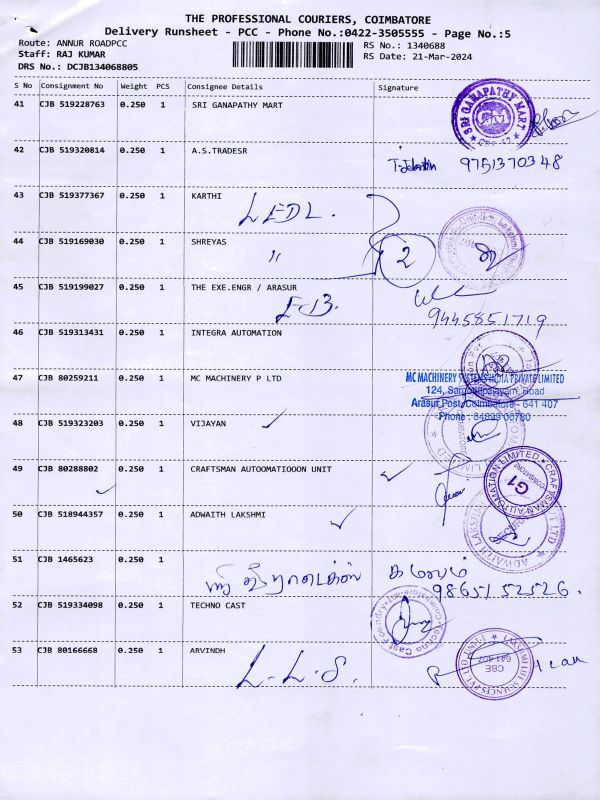 THE PROFESSIONAL COURIERS, COIMBATORE
Delivery Runsheet - PCC - Phone No.:0422-3505555 - Page No.:5
Route: ANNUR ROADPCC
RS No.: 1340688
Staff: RAJ KUMAR
RS Date: 21-Mar-2024
DRS No.: DCJB134068805
S No Consignment No Weight PCS Consignee Details Signature
41 CJB 519228763 0.250 1 SRI GANAPATHY MART
SRI GANAPATHY MART
42 CJB 519320814 0.250 1 A.S.TRADESR
9751370348
43 CJB 519377367 0.250 1 KARTHI
LEDL.
44 CJB 519169030 0.250 1 SHREYAS
" 2
45 CJB 519199027 0.250 1 THE EXE.ENGR / ARASUR
EB.
9445851719
46 CJB 519313431 0.250 1 INTEGRA AUTOMATION
47 CJB 80259211 0.250 1 MC MACHINERY P LTD
MC MACHINERY SYSTEMS INDIA PRIVATE LIMITED
Road
Arasur Post, Coimbatore - 641 407
Phone :
48 CJB 519323203 0.250 1 VIJAYAN
49 CJB 80288802 0.250 1 CRAFTSMAN AUTOOMATIOOON UNIT
CRAFTSMAN AUTOMATION LIMITED
COIMBATORE
G1
50 CJB 518944357 0.250 1 ADWAITH LAKSHMI
ADWAITH LAKSHMI
51 CJB 1465623 0.250 1
98651 52526.
52 CJB 519334098 0.250 1 TECHNO CAST
Techno Cast Foundry
53 CJB 80166668 0.250 1 ARVINDH
L.L.S.
LAKSHMI LIFE SCIENCES PVT LTD
CBE
641 407